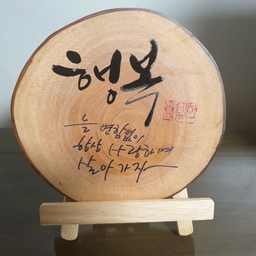 행복
늘 변함없이
항상 사랑하며
살아가자